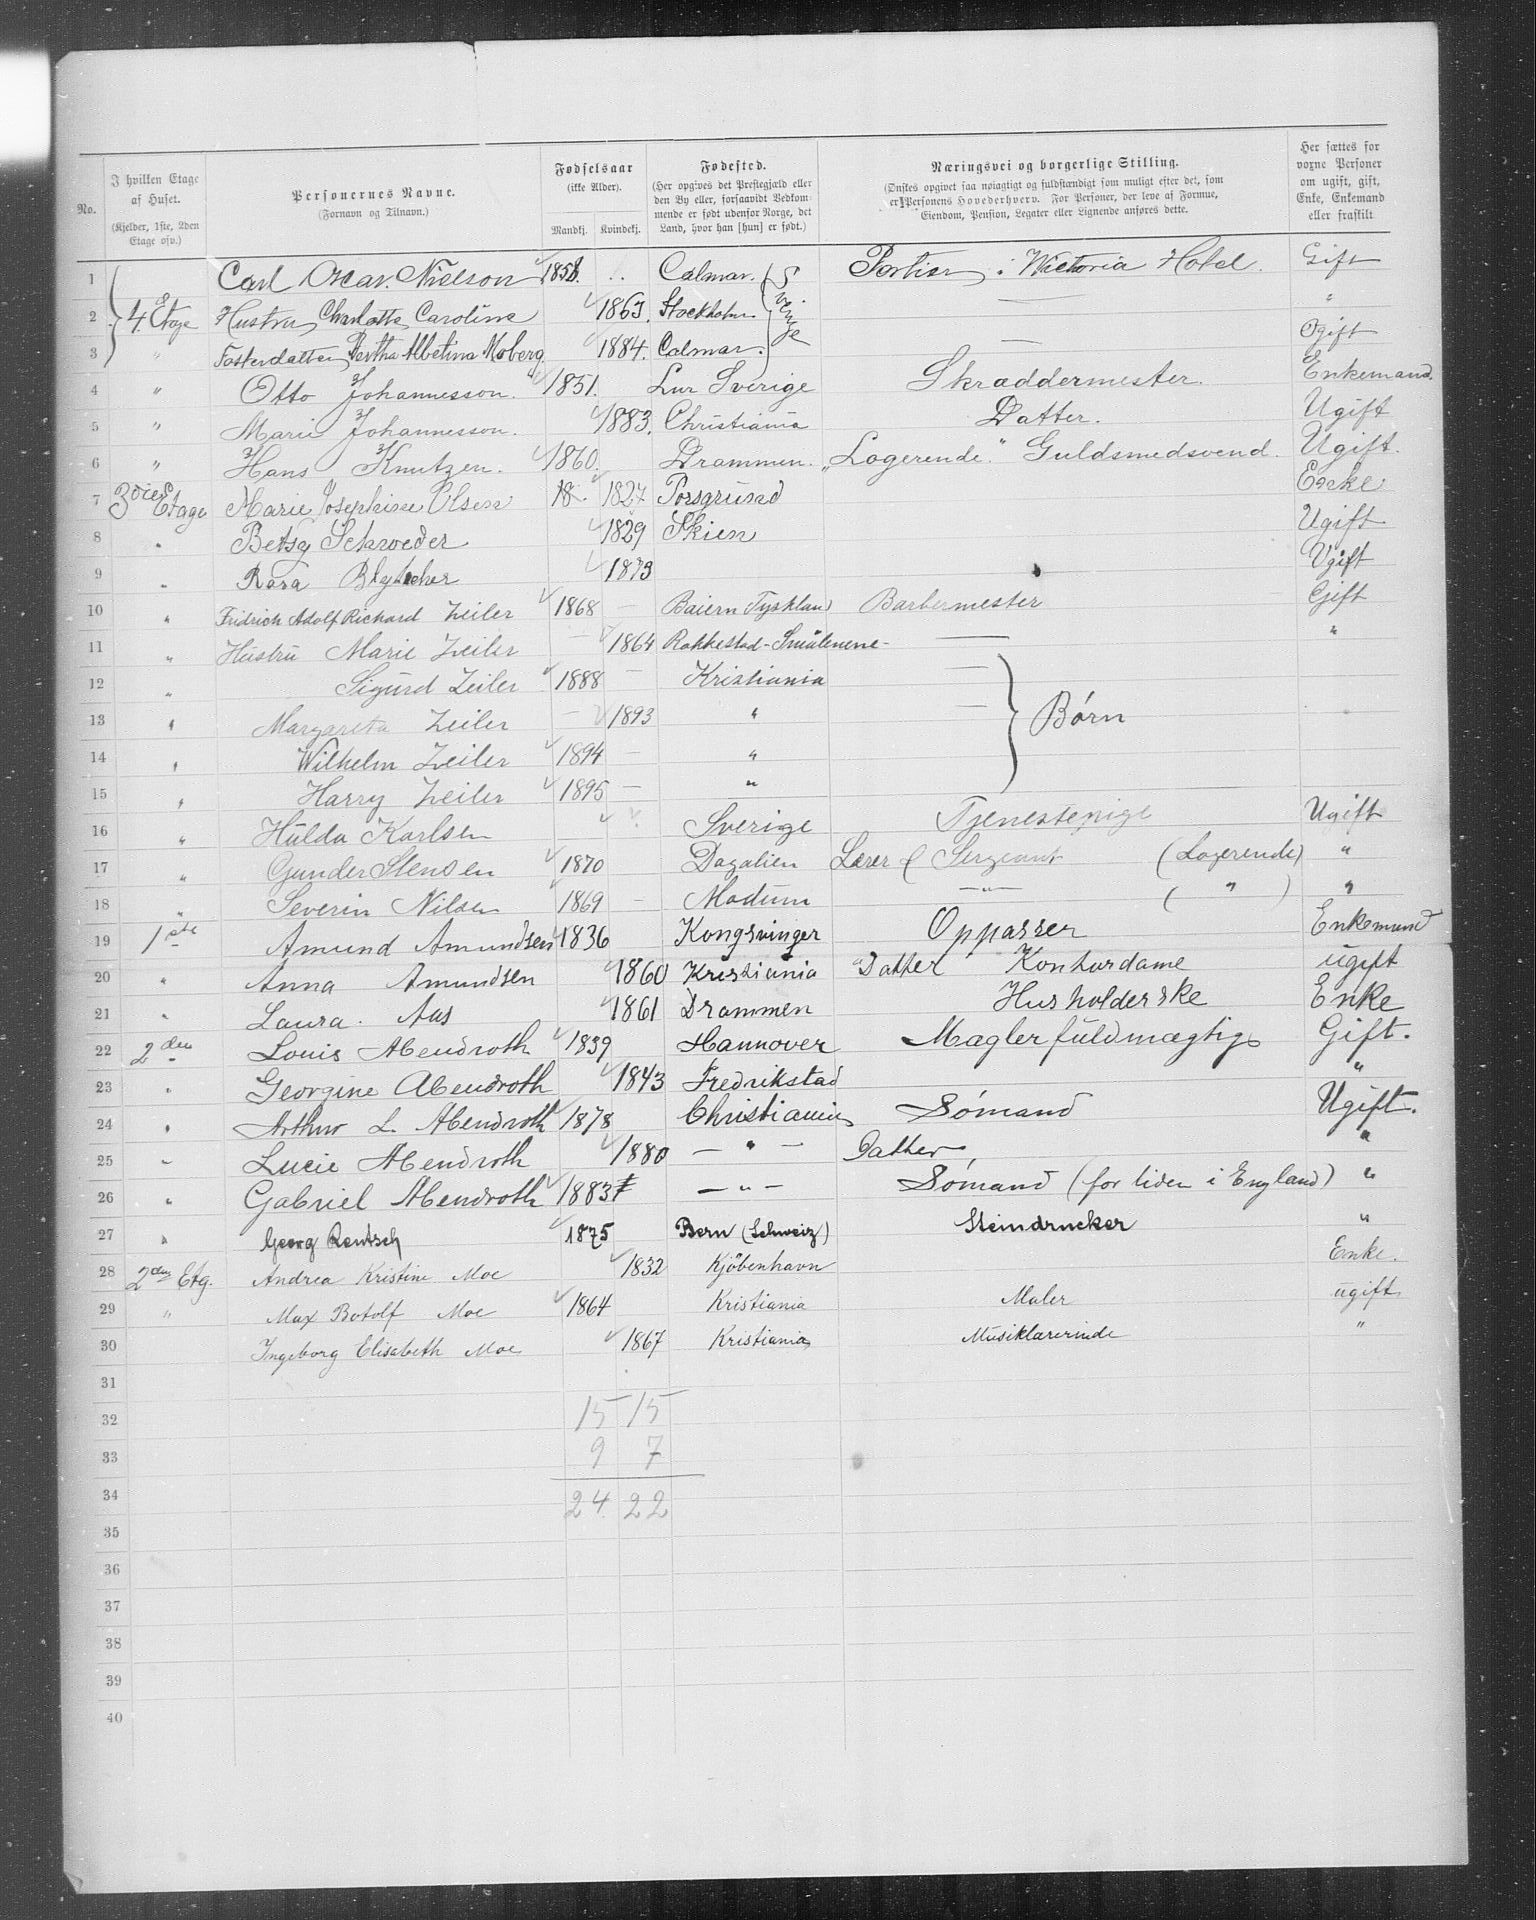 No.
I hvilken Etage af Huset.
(Kjelder, 1ste, 2den Etage osv.)
Personernes Navne.
(Fornavn og Tilnavn.)
Fødselsaar
(ikke Alder).
Mandkj. Kvindekj.
Fødested.
(Her opgives det Prestegjæld eller den By eller, forsaavidt Vedkommende er født udenfor Norge, det Land, hvor han [hun] er født.)
Næringsvei og borgerlige Stilling.
(Ønstes opgivet saa nøiagtigt og fuldstændigt som muligt efter det, som er Personens Hovederhverv. For Personer, der leve af Formue, Eiendom, Pension, Legater eller Lignende anføres dette.
Her sættes for voxne Personer om ugift, gift, Enke, Enkemand eller fraskilt
1 Carl Oscar Nielson 1858. Calmar. Sverige Portier i Wictoria Hotel. Gift
2 4. Etage Hustru Charlotta Caroline 1863. Stockholm. — "
3 " Fosterdatter Bertha Albetina Moberg. 1884. Calmar. — Ogift
4 " Otto Johannesson. 1851. Lur Sverige Skræddermester. Enkemand.
5 " Marie Johannesson. 1883. Christiania Datter. Ugift
6 " Hans Knutzen. 1860. Drammen. „Logerende." Guldsmedsvend. Ugift.
7 3die Etage Marie Josephine Olsen 18. 1827 Porsgrund Enke
8 " Betsy Schroeder 1829 Skien Ugift
9 " Rosa 1873 Ugift
10 " Fridrich Adolf Richard Zeiler 1868 — Baiern Tyskland Barbermester Gift
11 " Hustru Marie Zeiler — 1864 Rakkestad - Smålenene - — "
12 " Sigurd Zeiler 1888 — Kristiania —
13 " Margareta Zeiler — 1893 " — Børn
14 " Wilhelm Zeiler 1894 — "
15 " Harry Zeiler 1895 — "
16 " Hulda Karlsen Sverige Tjenestepige Ugift
17 " Gunder Stensen 1870 Dagalien Lærer & Sergeant (Logerende) "
18 " Severin Nilsen 1869 — Modum — " — ( " ) "
19 1ste Amund Amundsen 1836 Kongsvinger Oppasser Enkemand
20 " Anna Amundsen 1860 Kristiania Datter Kontordame ugift
21 " Laura. Aas 1861 Drammen Husholderske Enke
22 2den Louis Abendroth 1839 Hannover Mæglerfuldmægtig Gift.
23 " Georgine Abendroth 1843 Fredrikstad "
24 " Arthur L. Abendroth 1878 Christiania Sømand Ugift.
25 " Lucie Abendroth 1880 — " — Datter "
26 " Gabriel Abendroth 1883 — " — Sømand (for tiden i England) "
27 " Georg Rentsch 1875 Bern (Schweiz) Steindrucker "
28 2den Etg. Andrea Kristine Moe 1832 Kjöbenhavn Enke.
29 " Max Botolf Moe 1864 Kristiania Maler ugift
30 Ingeborg Elisabeth Moe 1867 Kristiania Musiklærerinde "
31
32 15 15
33 9 7
34 24 22
35
36
37
38
39
40